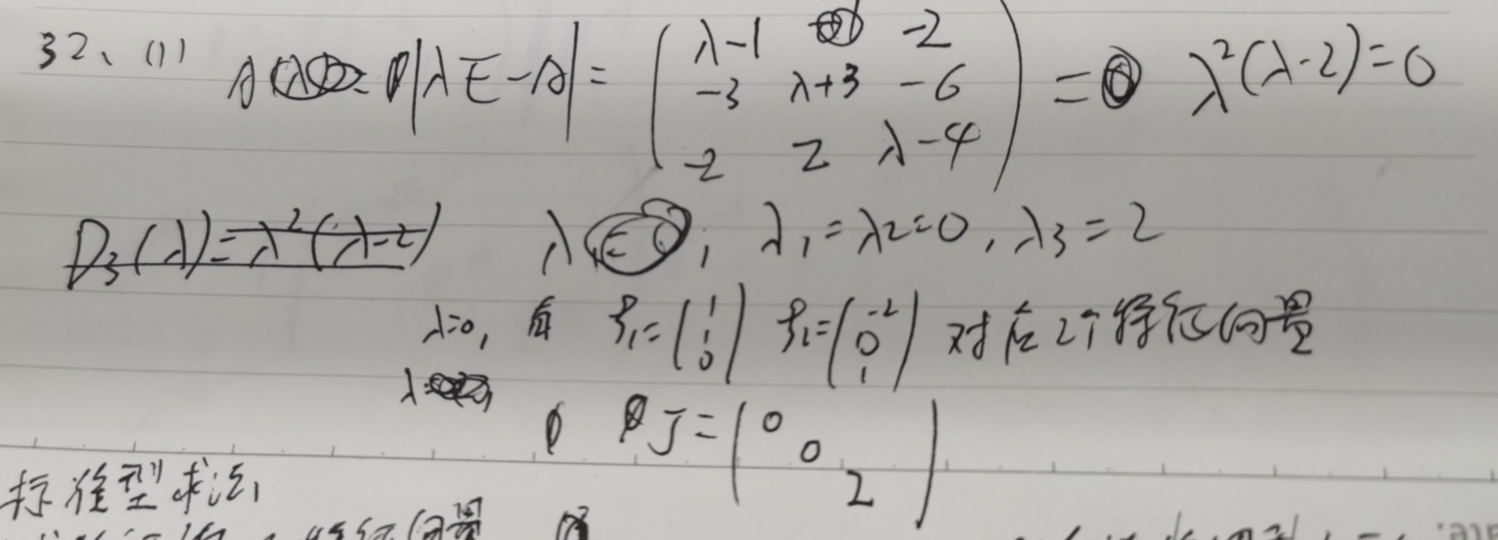 32、(1) |λE-A| = ( λ-1 -2 = λ²(λ-2)=0
-3 λ+3 -6
-2 2 λ-4 )
D₃(λ)=λ²(λ-2) λ , λ₁=λ2=0, λ3=2
λ=0, 有 ξ₁=(1 1 0) ξ₂=(-2 0 1) 对应2个特征向量
λ
J=(0
0
2)
标准型求法,
特征向量